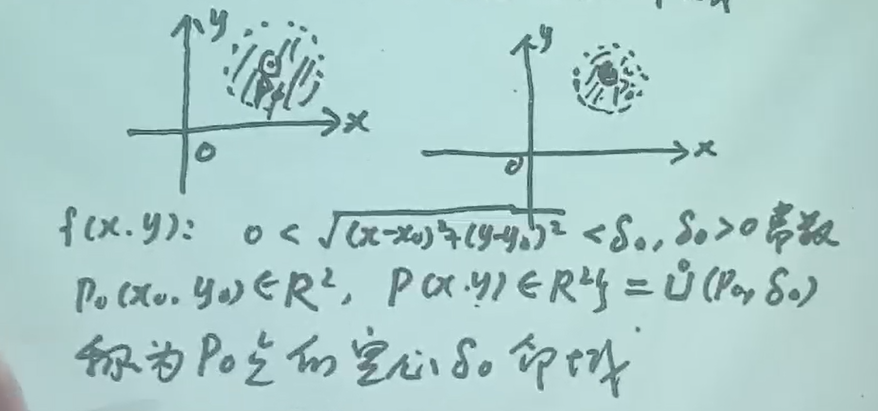 y
x
0
y
x
0
f(x.y): 0 < √(x-x₀)²+(y-y₀)² < δ₀, δ₀>0 常数
P₀(x₀.y₀)∈R², P(x.y)∈R²} = Ů(P₀,δ₀)
称为P₀点的空心δ₀邻域